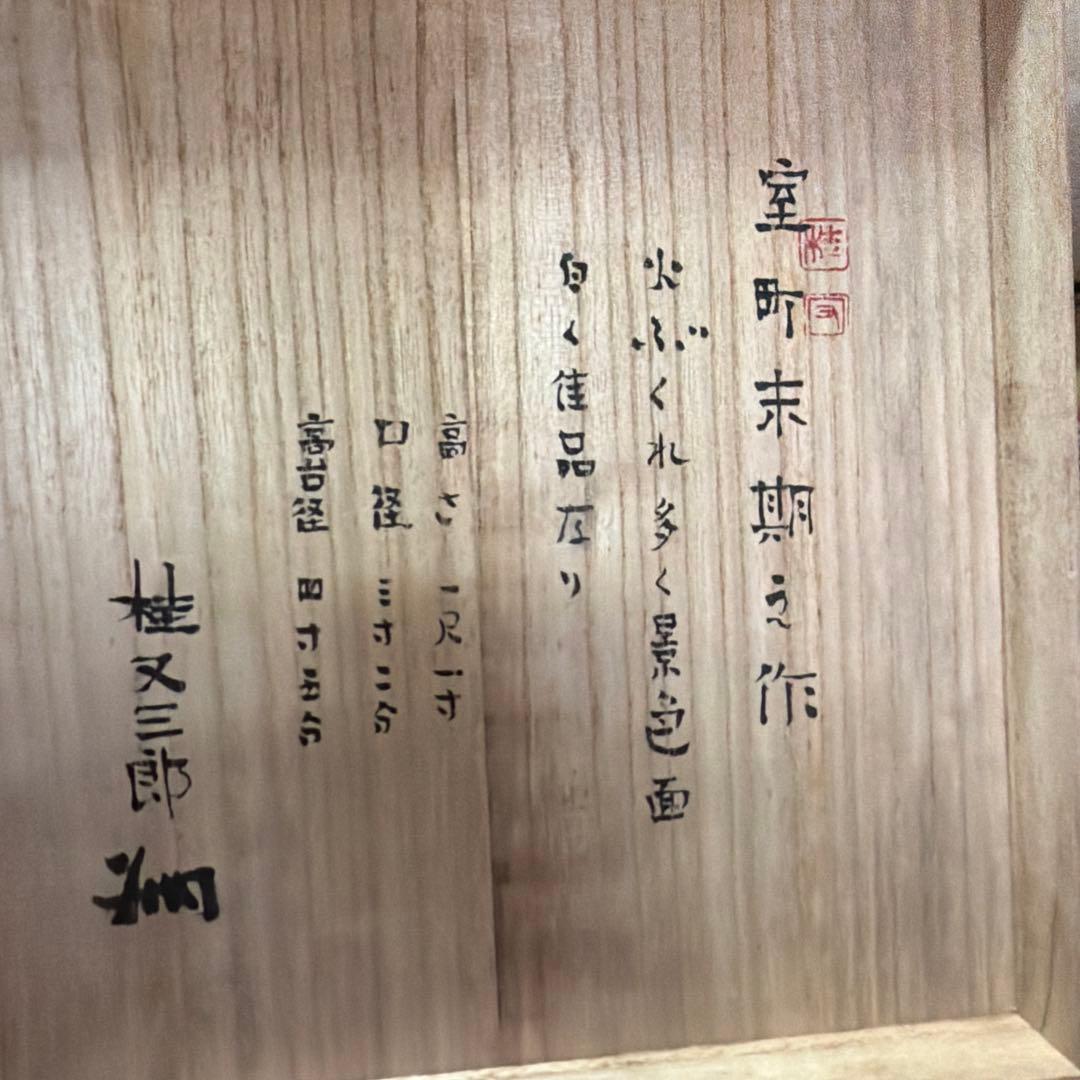 室町末期之作
火ぶくれ多く景色面
白く佳品なり
高さ 一尺一寸
口径 三寸二分
高台径 四寸五分
桂又三郎
桂
又